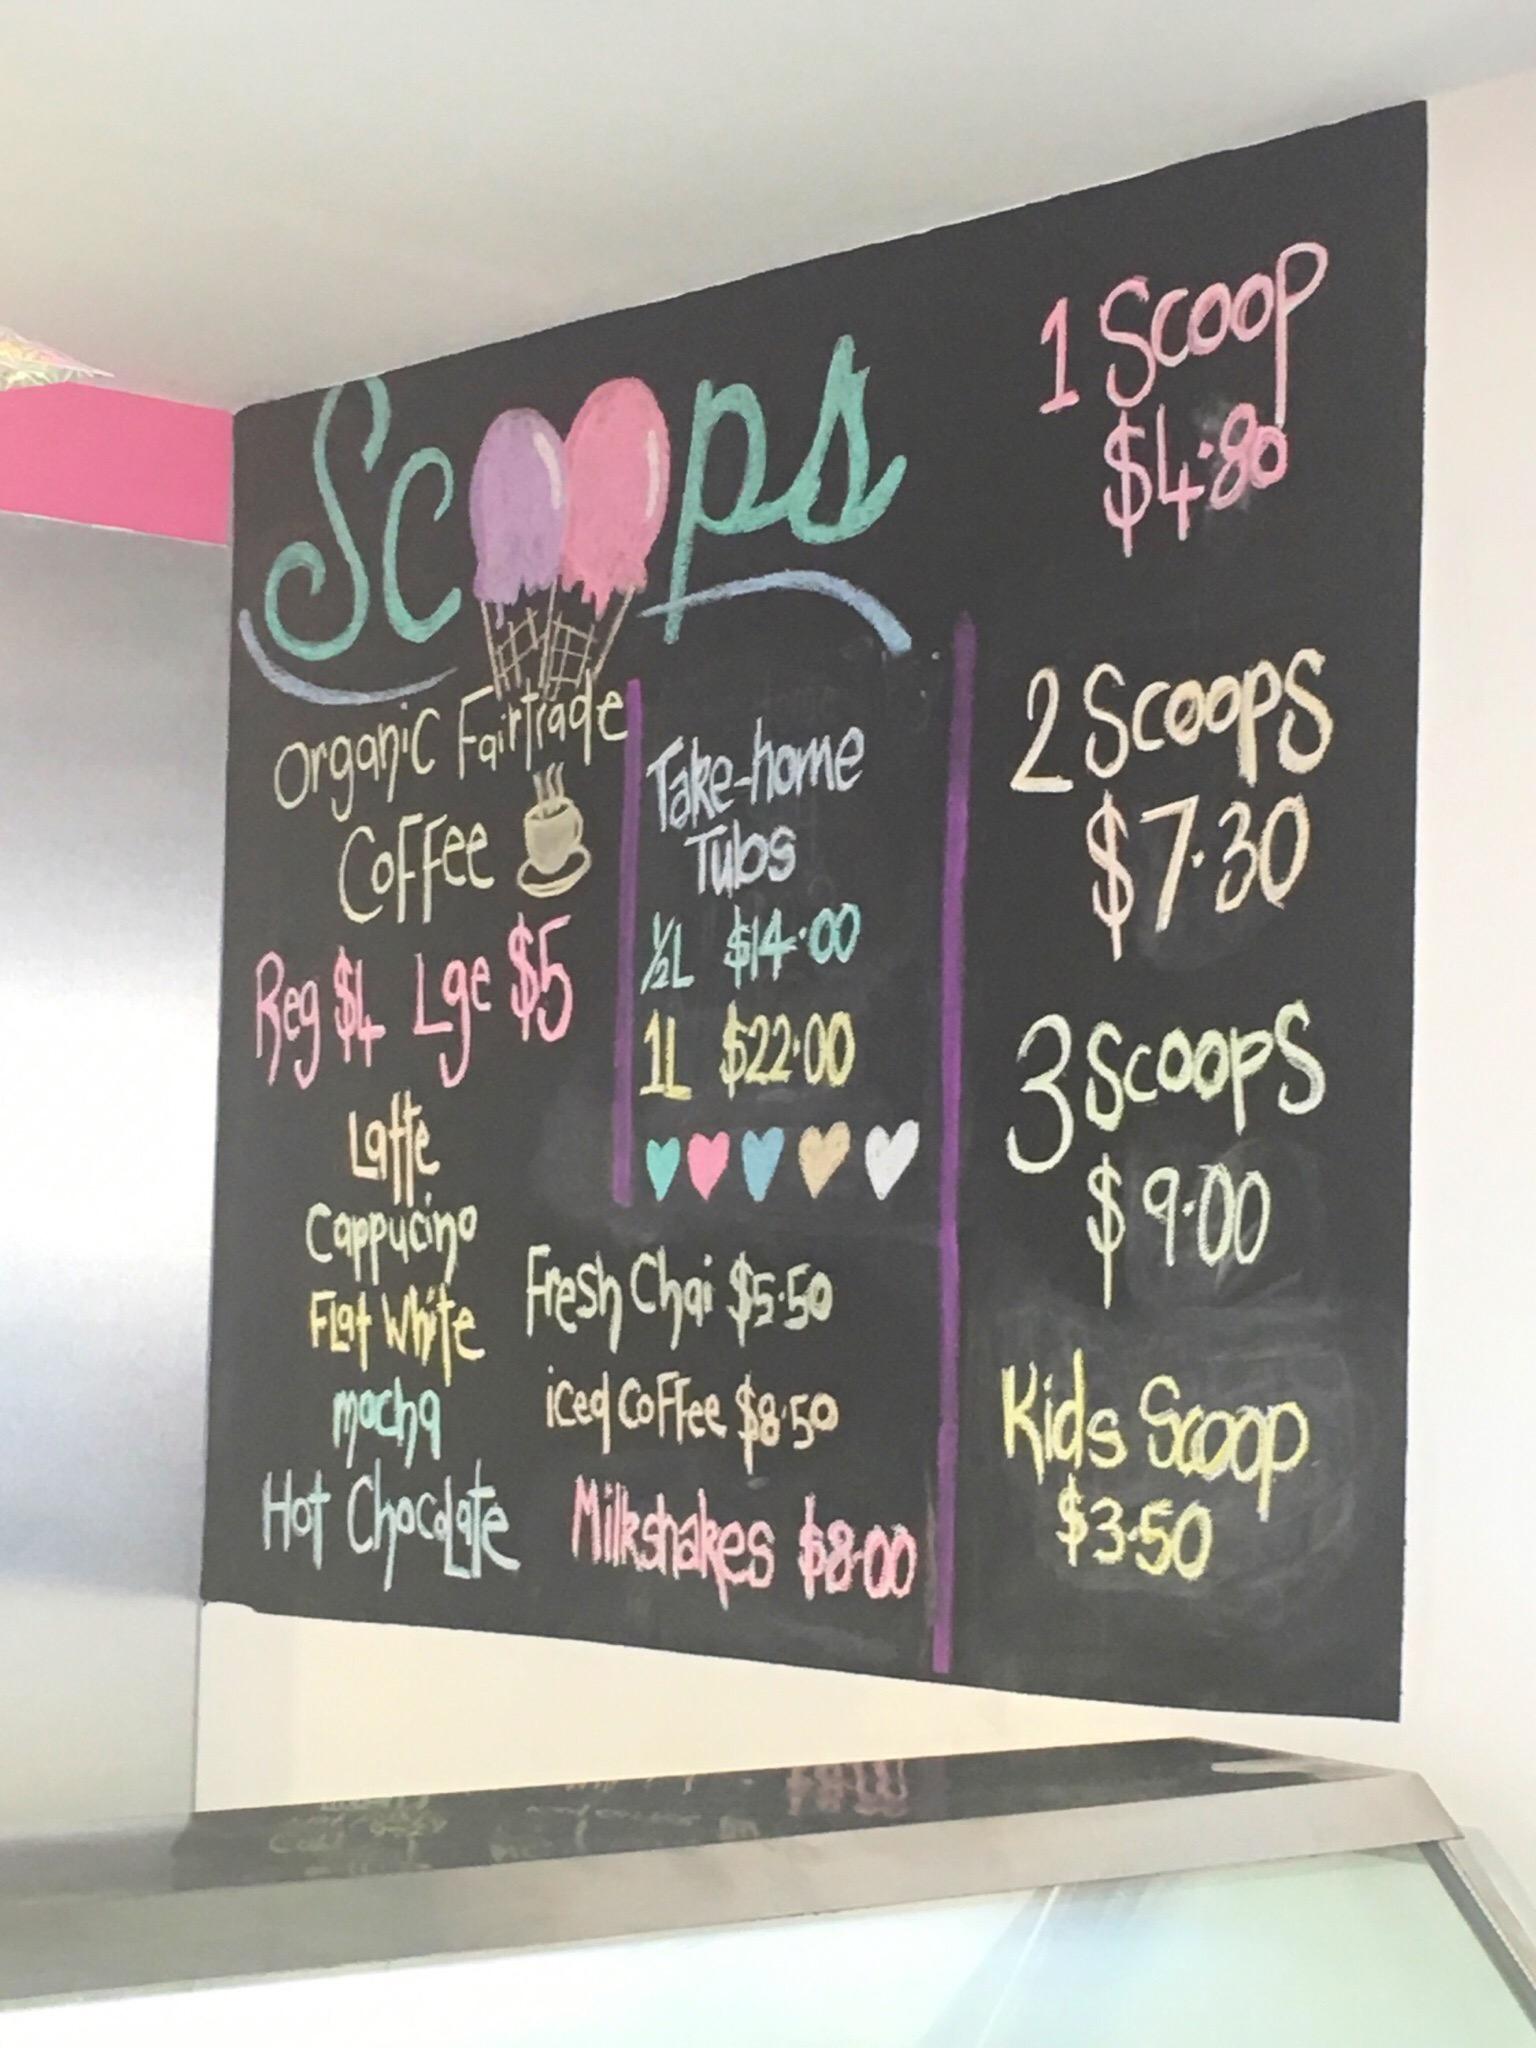 Scoops
Organic Fairtrade
Coffee
Reg $4 Lge $5
Latte
Cappucino
Flat White
mocha
Hot Chocolate
Take-home
Tubs
½L $14.00
1L $22.00
Fresh Chai $5.50
iced Coffee $8.50
Milkshakes $8.00
1 Scoop
$4.80
2 Scoops
$7.30
3 Scoops
$9.00
Kids Scoop
$3.50